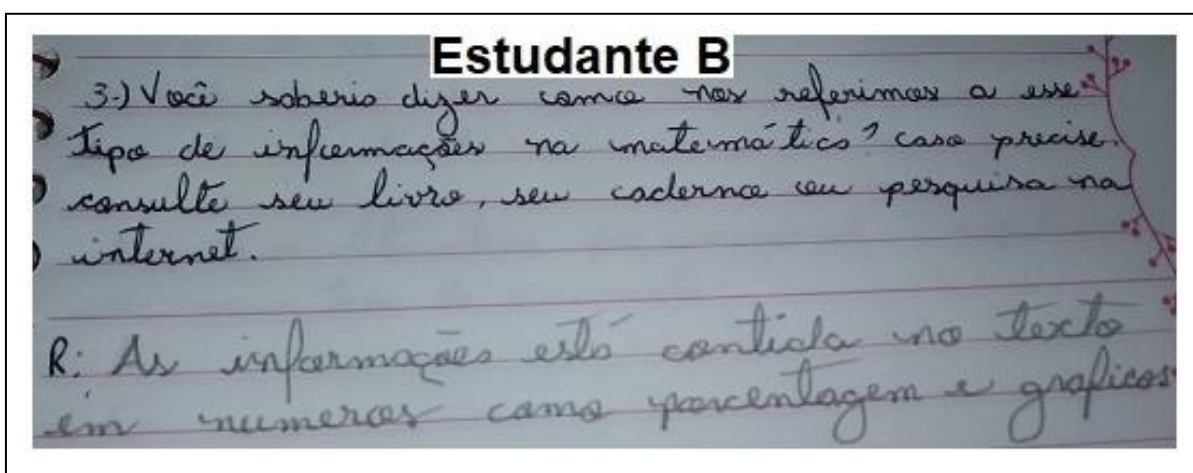 Estudante B
3-) Você saberia dizer como nos referimos a esse
tipo de informações na matemática? caso precise.
consulte seu livro, seu caderno ou pesquisa na
internet.
R: As informações está contida no texto
em numeros como porcentagem e graficos